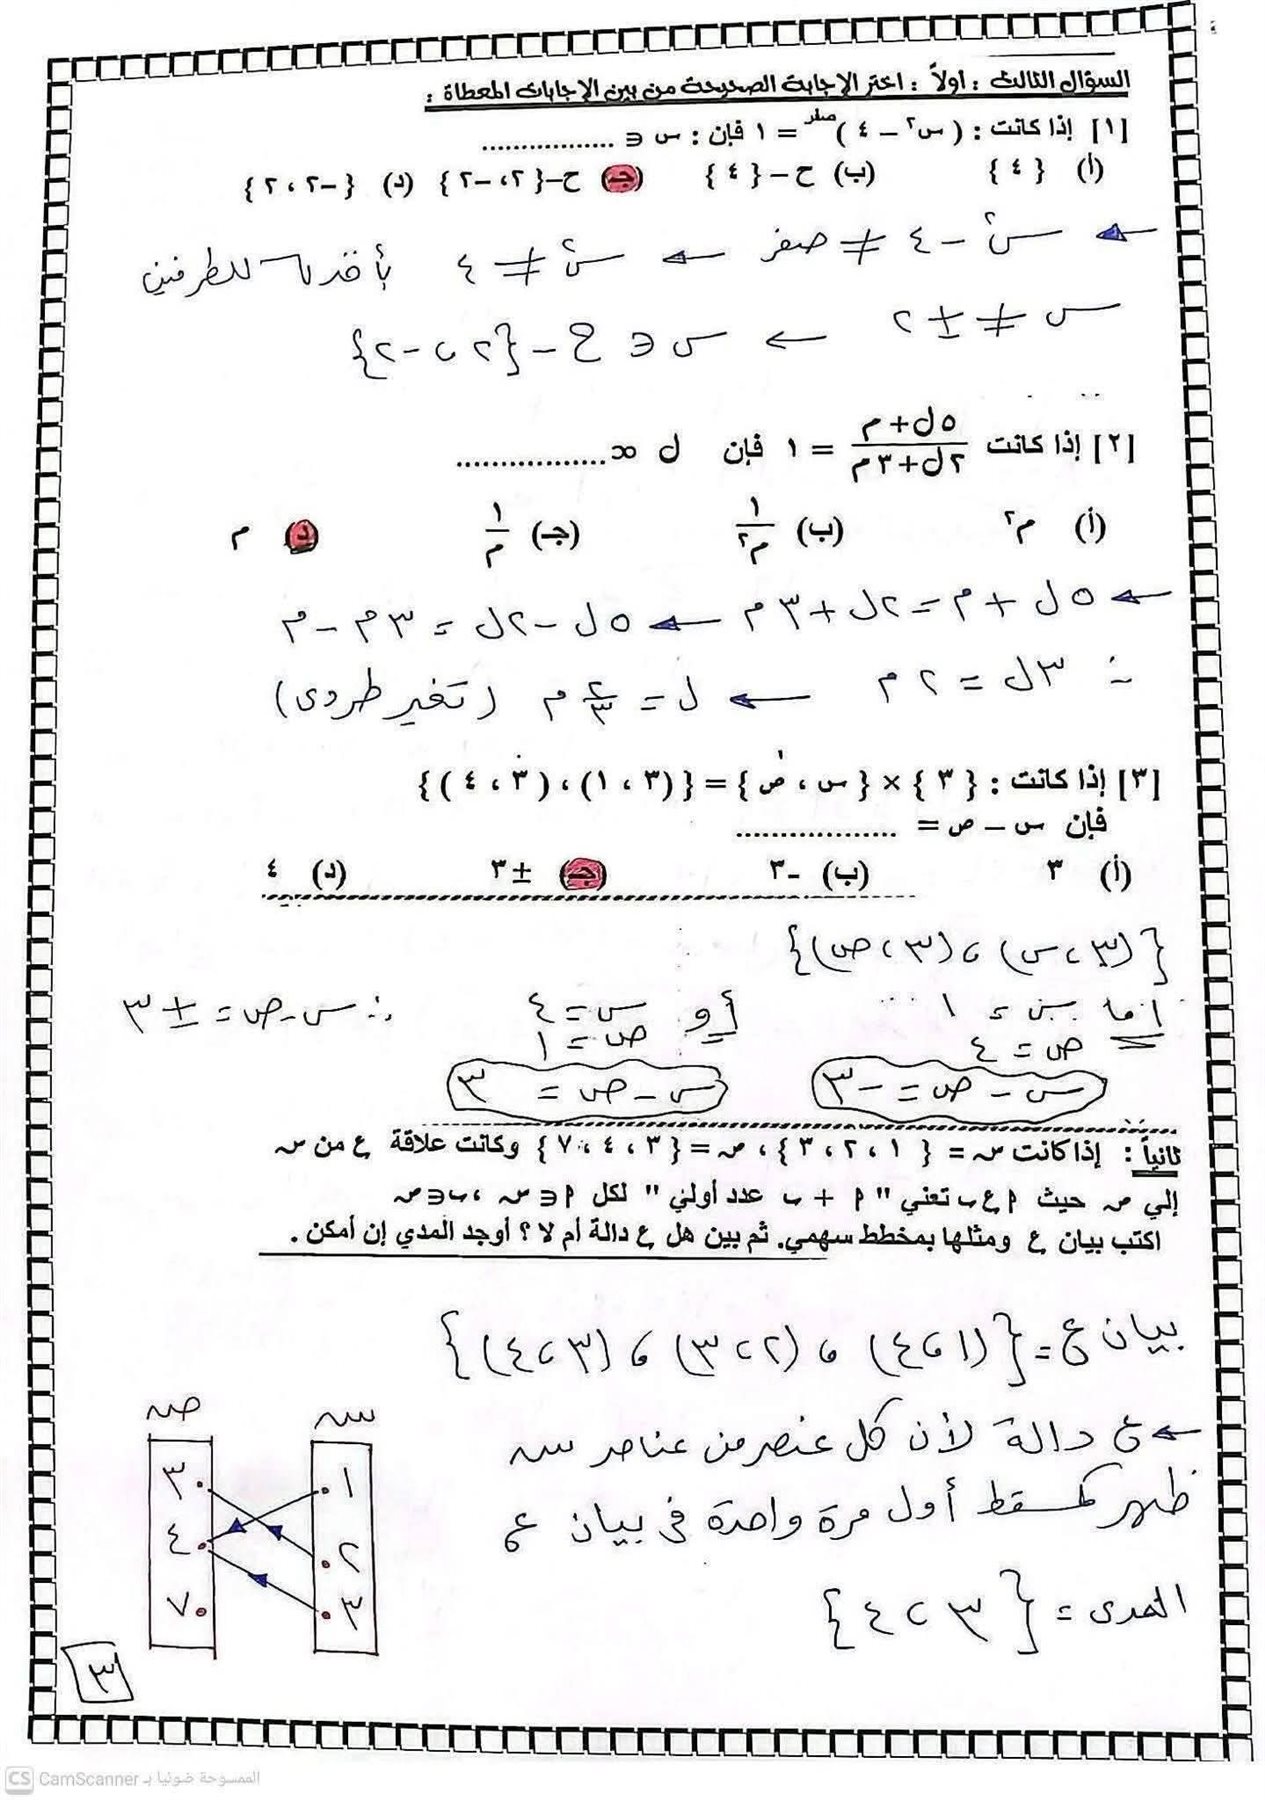 السؤال الثالث : أولاً : اختر الإجابة الصحيحة من بين الإجابات المعطاة :
[١] إذا كانت : ( س² – ٤ )صفر = ١ فإن : س ∈ .................
(أ) { ٤ } (ب) ح – { ٤ } (جـ) ح – { ٢ ، -٢ } (د) { -٢ ، ٢ }
← س² – ٤ ≠ صفر ← س² ≠ ٤ بأخذ √ للطرفين
س ≠ ± ٢ ← س ∈ ح – { ٢ ، -٢ }
[٢] إذا كانت (٥ل + م)/(٢ل + ٣م) = ١ فإن ل ∝ .................
(أ) م² (ب) ١/م² (جـ) ١/م (د) م
← ٥ل + م = ٢ل + ٣م ← ٥ل – ٢ل = ٣م – م
∴ ٣ل = ٢م ← ل = ٢/٣ م ( تغير طردى )
[٣] إذا كانت : { ٣ } × { س ، ص } = { (٣ ، ١) ، (٣ ، ٤) }
فإن س – ص = .................
(أ) ٣ (ب) -٣ (جـ) ± ٣ (د) ٤
{ (٣ ، س) ، (٣ ، ص) }
إما س = ١ أو س = ٤ ∴ س – ص = ± ٣
ص = ٤ ص = ١
س – ص = -٣ س – ص = ٣
ثانياً : إذا كانت س = { ١ ، ٢ ، ٣ } ، ص = { ٣ ، ٤ ، ٧ } وكانت علاقة ع من س
إلي ص حيث م ع ب تعني " م + ب عدد أولي " لكل م ∈ س ، ب ∈ ص
اكتب بيان ع ومثلها بمخطط سهمي. ثم بين هل ع دالة أم لا ؟ أوجد المدي إن أمكن .
بيان ع = { (١ ، ٤) ، (٢ ، ٣) ، (٣ ، ٤) }
← ع دالة لأن كل عنصر من عناصر س
ظهر كمسقط أول مرة واحدة فى بيان ع
المدى = { ٣ ، ٤ }
ص س
٣ ١
٤ ٢
٧ ٣
٣
CS CamScanner الممسوحة ضوئيا بـ